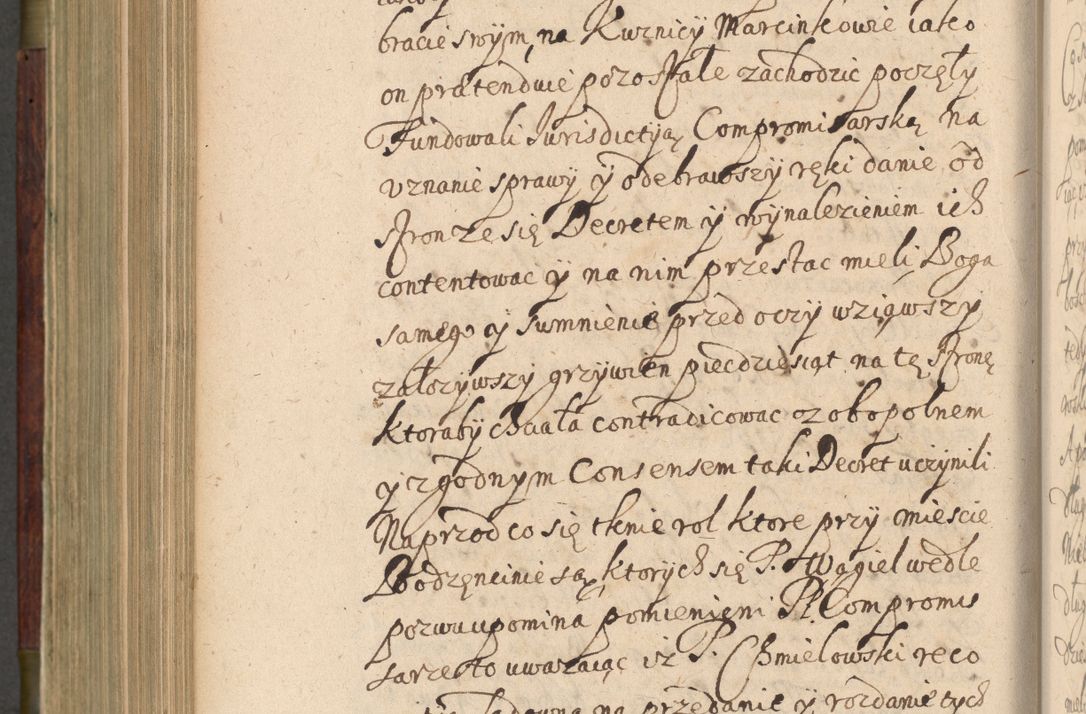 bracie swÿm, na Kurnicÿ Marcinkowie iako
on prætenduie pozostałe zachodzic poczęły
Fundowali Jurisdictÿą Compromisarską na
vznanie sprawÿ ÿ odebrawszÿ ręki danie od
stron ze się Decretem ÿ wÿnalezieniem ich
contentowac ÿ na nim przestac mieli, Boga
samego ÿ sumnienie przed oczÿ wziąwszÿ
załozÿwszÿ grzÿwien piecdziesiąt na tę stronę
ktorabÿ chciała contradicowac oz obopolnem
ÿ zgodnÿm Consensem taki Decret uczÿnili
Naprzod co się tknie rol ktore przÿ miescie
Bodzęncinie są, ktorÿch się P. Wągiel wedle
pozwu upomina pomienieni PP. Compromis
sarze to uwazaiąc iz P. Chmielowski reco
na przedanie ÿ rozdanie tÿch